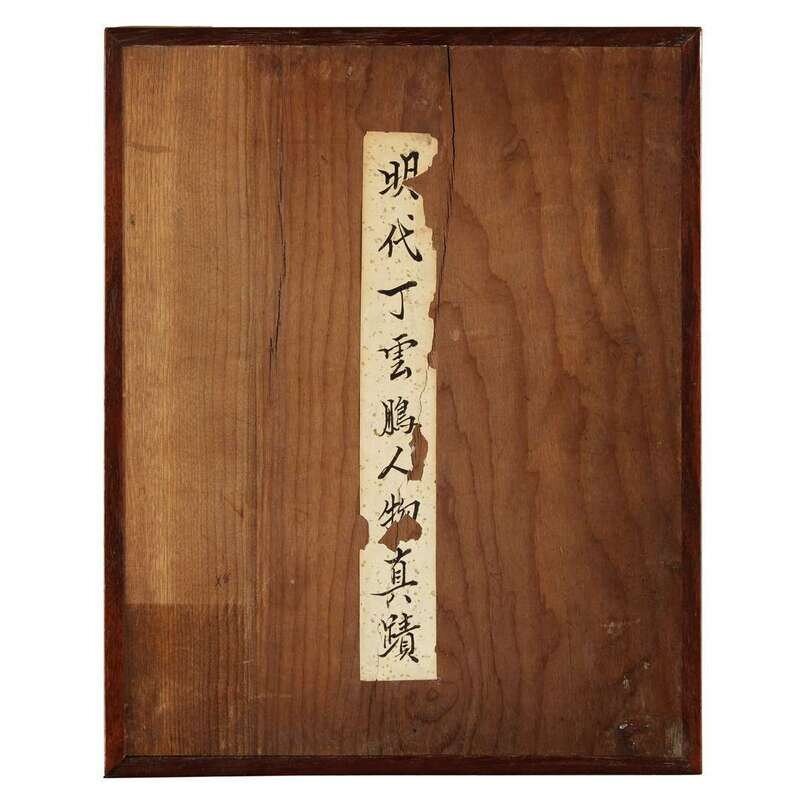 明代丁雲鵬人物真蹟